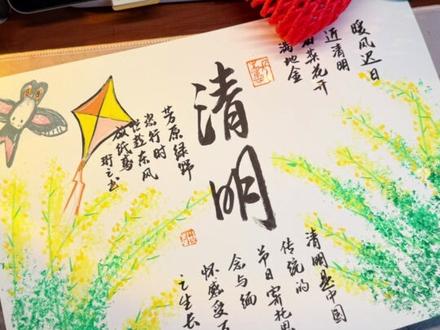 暖风迟日
近清明
菜花开
满地金
清明
芳原绿野
恣行时
忙趁东风
放纸鸢
清明是中国
传统的
节日寄托思
念与缅
怀感受
之生长